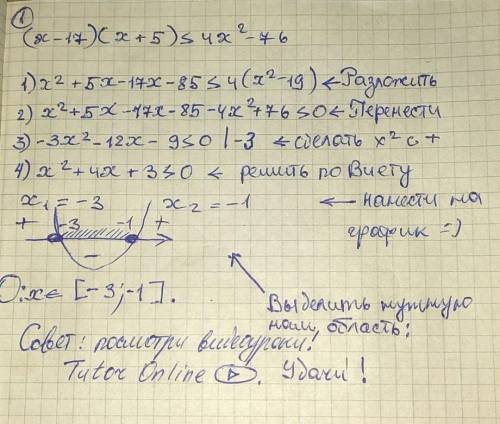 ①
(x-17)(x+5)≤4x²-76
1) x²+5x-17x-85≤4(x²-19) ← Разложить
2) x²+5x-17x-85-4x²+76≤0 ← Перенести
3) -3x²-12x-9≤0 |-3 ← сделать x² с +
4) x²+4x+3≤0 ← решить по Виету
x₁=-3 x₂=-1 ← нанести на
+ -3 -1 + график =)
-
O: x∈[-3;-1].
Выделить нужную
нам, область;
Совет: посмотри видеоуроки!
Tutor Online ▷. Удачи!